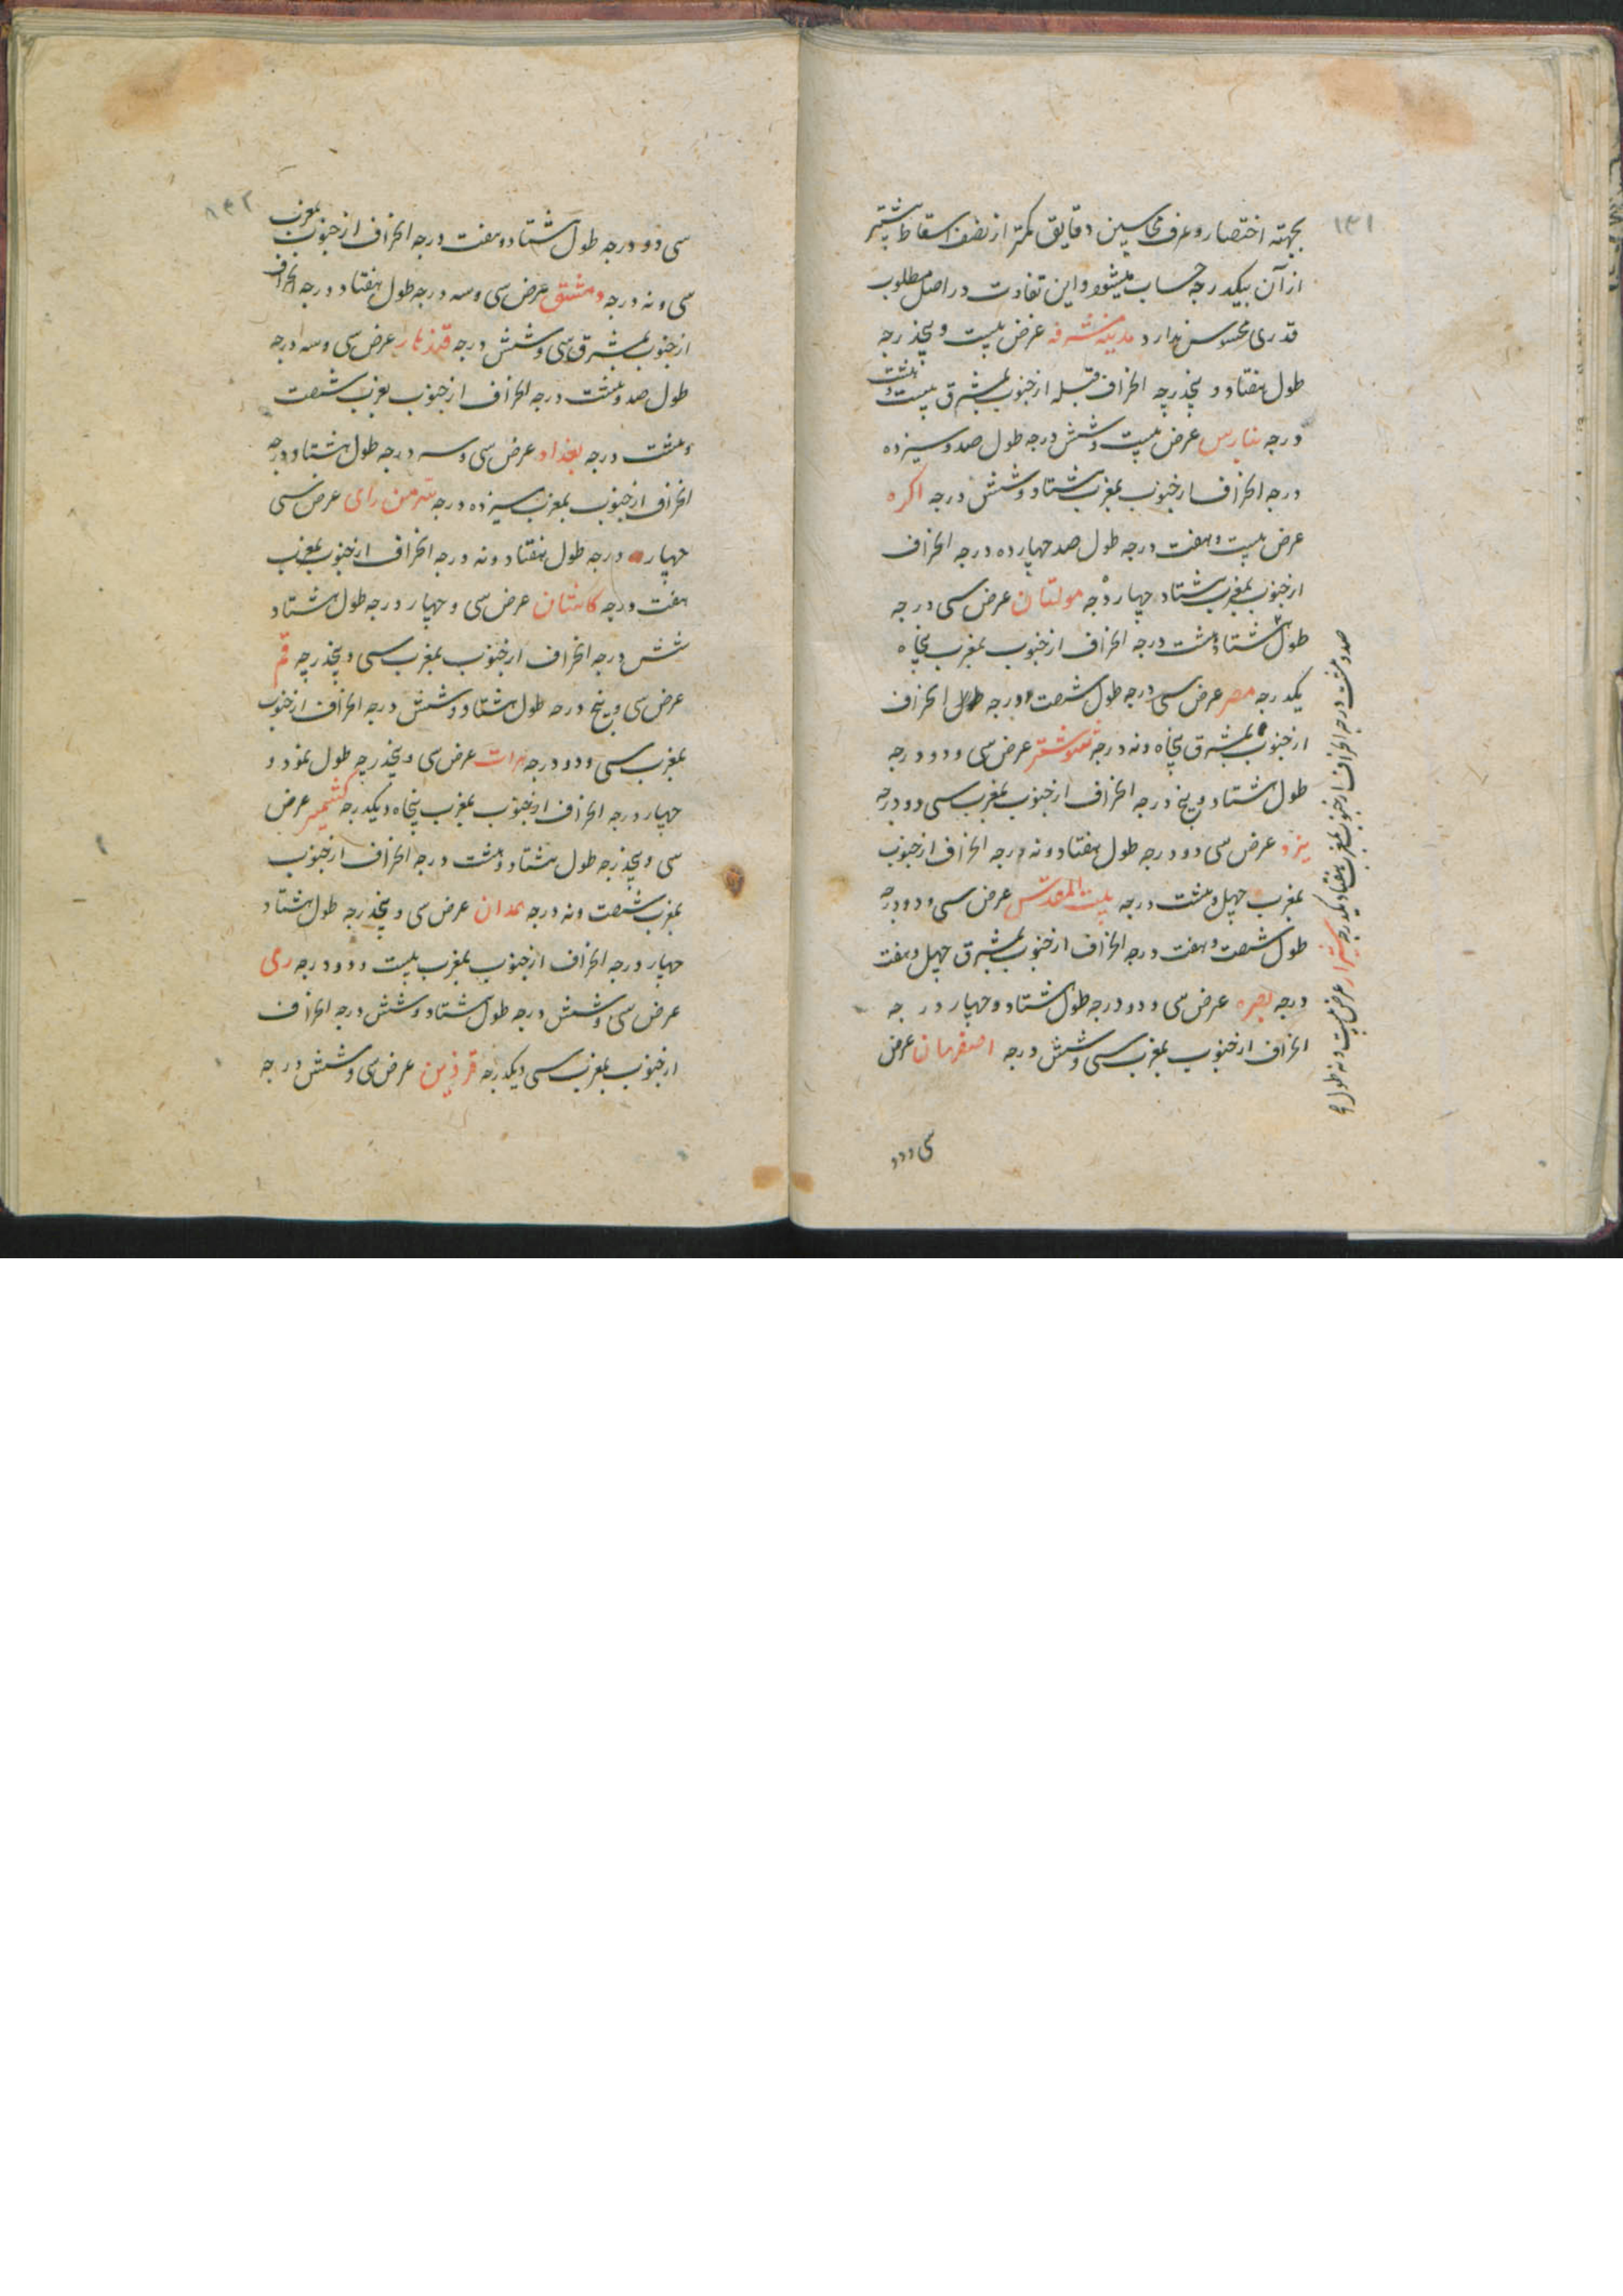 ۱۳۱
بجهته اختصار و عرف محاسبین دقایق کمتر از نصف اسقاط و بیشتر
از آن بیکدرجه حساب میشود و این تفاوت در اصل مطلوب
قدری محسوس ندارد مدینه مشرفه عرض بیست و پنجدرجه
طول هفتاد و پنجدرجه انحراف قبله از جنوب بمشرق بیست و هشت
درجه بنارس عرض بیست و شش درجه طول صد و سیزده
درجه انحراف از جنوب بمغرب هشتاد و شش درجه اکره
عرض بیست و هفت درجه طول صد چهارده درجه انحراف
از جنوب بمغرب هشتاد چهار درجه مولتان عرض سی درجه
طول هشتاد و هشت درجه انحراف از جنوب بمغرب پنجاه
یکدرجه مصر عرض سی درجه طول شصت درجه انحراف
از جنوب بمشرق پنجاه و نه درجه شوشتر عرض سی و دو درجه
طول هشتاد و پنج درجه انحراف از جنوب بمغرب سی دو درجه
یزد عرض سی دو درجه طول هفتاد و نه درجه انحراف از جنوب
بمغرب چهل و هشت درجه بیت المقدس عرض سی و دو درجه
طول شصت و هفت درجه انحراف از جنوب بمشرق چهل و هفت
درجه بصره عرض سی و دو درجه طول هشتاد و چهار درجه
انحراف از جنوب بمغرب سی و شش درجه اصفهان عرض
سی و دو
صد و هشت درجه انحراف از جنوب بمغرب هفتاد و یکدرجه شیراز عرض بیست و نه طول
۱۳۲
سی و دو درجه طول هشتاد و هفت درجه انحراف از جنوب بمغرب
سی و نه درجه دمشق عرض سی و سه درجه طول هفتاد درجه انحراف
از جنوب بمشرق سی و شش درجه قندهار عرض سی و سه درجه
طول صد و هشت درجه انحراف از جنوب بغرب شصت
و هشت درجه بغداد عرض سی و سه درجه طول هشتاد درجه
انحراف از جنوب بمغرب سیزده درجه سرمن رای عرض سی
چهار درجه طول هفتاد و نه درجه انحراف از جنوب بمغرب
هفت درجه کاشان عرض سی و چهار درجه طول هشتاد
شش درجه انحراف از جنوب بمغرب سی و پنجدرجه قم
عرض سی و پنج درجه طول هشتاد و شش درجه انحراف از جنوب
بمغرب سی و دو درجه هرات عرض سی و پنجدرجه طول نود و
چهار درجه انحراف از جنوب بمغرب پنجاه و یکدرجه کشمیر عرض
سی و پنجدرجه طول هشتاد و هشت درجه انحراف از جنوب
بمغرب شصت و نه درجه همدان عرض سی و پنجدرجه طول هشتاد
چهار درجه انحراف از جنوب بمغرب بیست و دو درجه ری
عرض سی و شش درجه طول هشتاد و شش درجه انحراف
از جنوب بمغرب سی و یکدرجه قزوین عرض سی و شش درجه